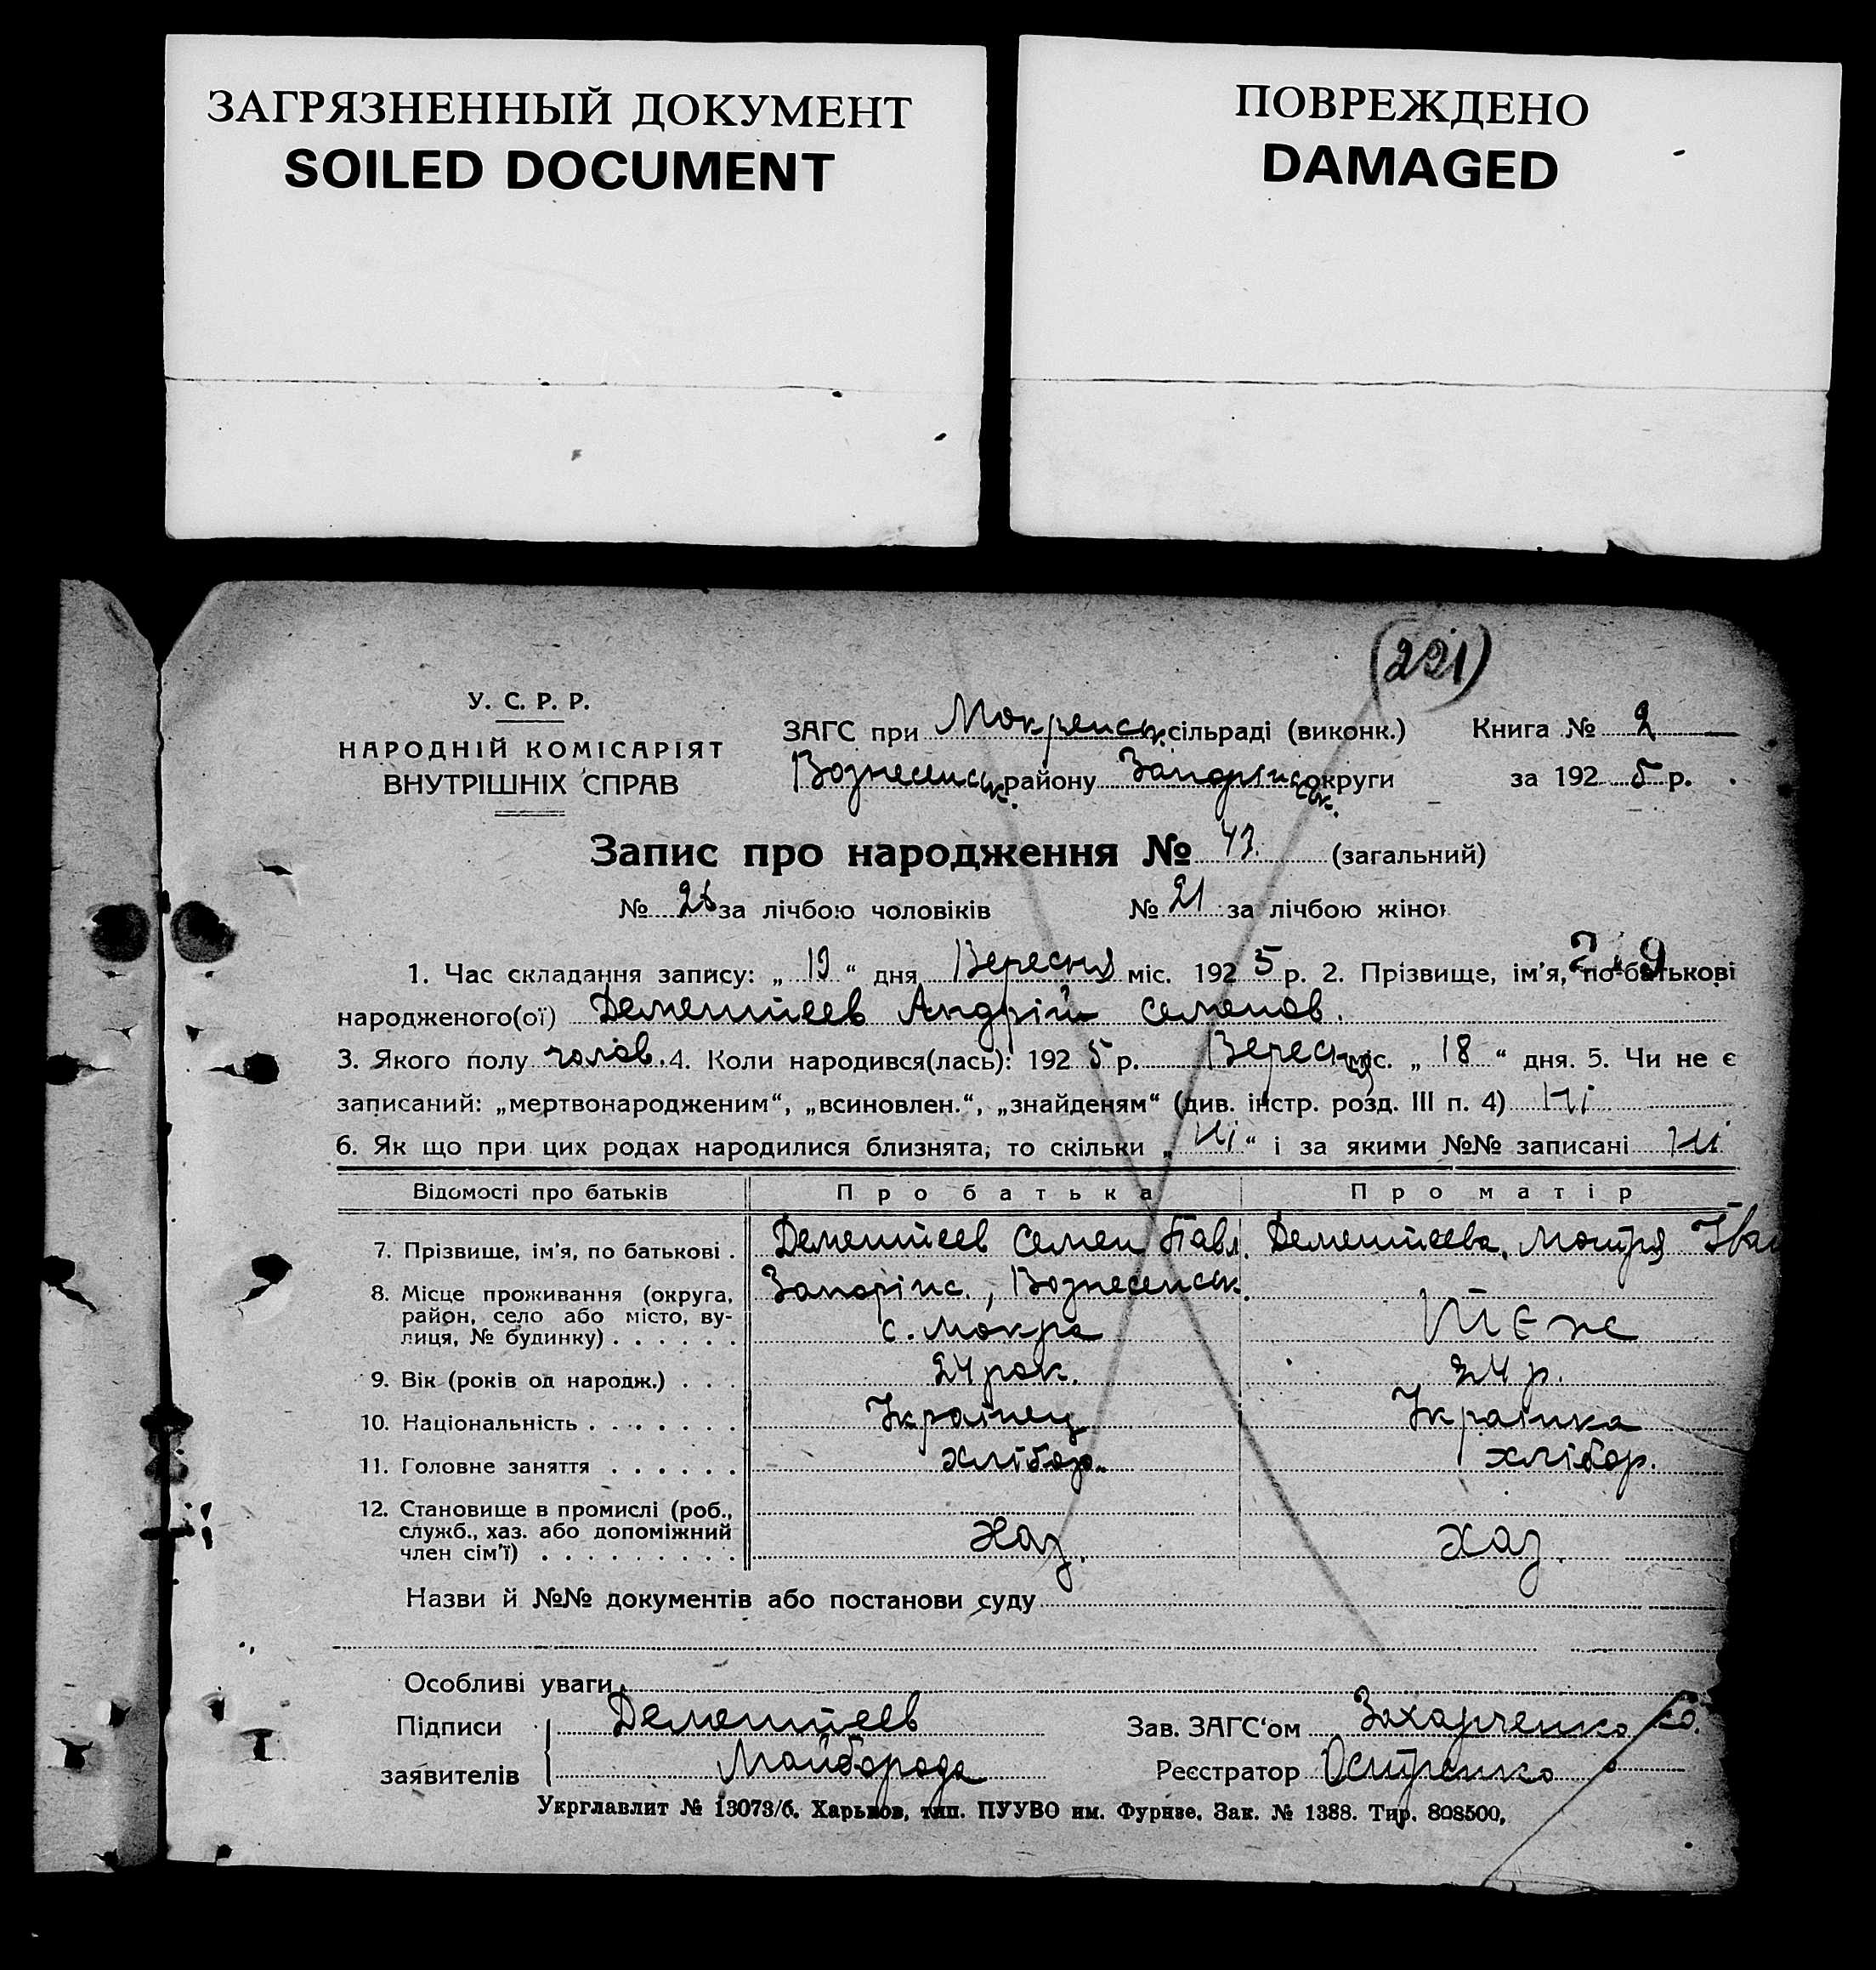 ЗАГРЯЗНЕННЫЙ ДОКУМЕНТ
SOILED DOCUMENT
ПОВРЕЖДЕНО
DAMAGED
(221)
У. С. Р. Р.
НАРОДНІЙ КОМІСАРІЯТ
ВНУТРІШНІХ СПРАВ
ЗАГС при Мокрянськ. сільраді (виконк.) Книга № 2
Вознесенськ. району Запоріжськ. округи за 1925 р.
Запис про народження № 47. (загальний)
№ 26 за лічбою чоловіків № 21 за лічбою жінок
1. Час складання запису: „ 19 “ дня Вересня міс. 1925 р. 2. Прізвище, ім'я, по-батькові
народженого(ої) Дементieев Андрій Семенов.
3. Якого полу чолов. 4. Коли народився(лась): 1925 р. Вересня міс. „ 18 “ дня. 5. Чи не є
записаний: „мертвонародженим“, „всиновлен.“, „знайденям“ (див. інстр. розд. III п. 4) Ні
6. Як що при цих родах народилися близнята, то скільки „ Ні “ і за якими №№ записані Ні
Відомості про батьків Про батька Про матір
7. Прізвище, ім'я, по батькові . Дементієев Семен Павл. Дементієева, Мотря Іван
8. Місце проживання (округа, район, село або місто, вулиця, № будинку) . . . . . . Запоріжс., Вознесенськ.
с. Мокра Теж
9. Вік (років од народж.) . . . 24 рок. 24 р.
10. Національність . . . . . . . Українец Українка
11. Головне заняття . . . . . . хлібор. хлібор.
12. Становище в промислі (роб., служб., хаз. або допоміжний член сім'ї) . . . . . . . . . Хаз. Хаз.
Назви й №№ документів або постанови суду
Особливі уваги
Підписи Дементієев Зав. ЗАГС'ом Захарченко
заявителів Майборода Реєстратор Остренко
Укрглавлит № 13073/б. Харьков, тип. ПУУВО им. Фрунзе. Зак. № 1388. Тир. 808500,